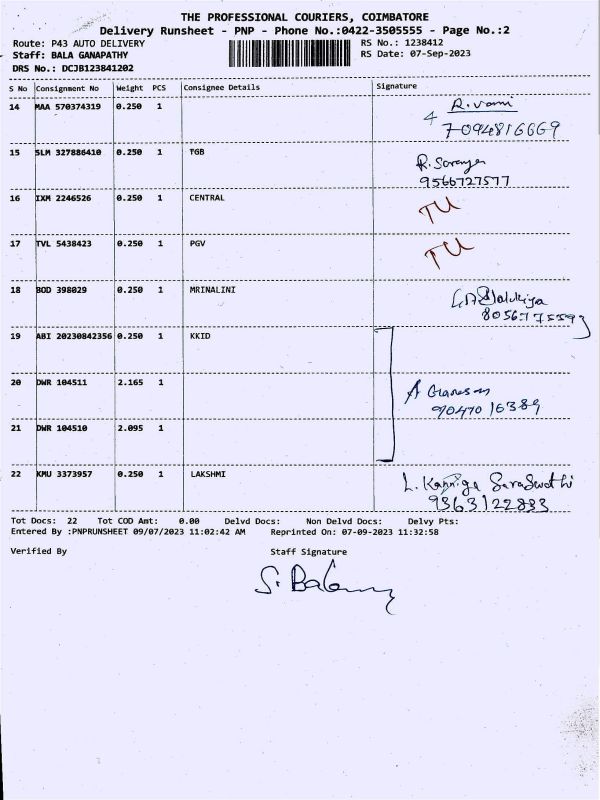 THE PROFESSIONAL COURIERS, COIMBATORE
Delivery Runsheet - PNP - Phone No.:0422-3505555 - Page No.:2
Route: P43 AUTO DELIVERY
Staff: BALA GANAPATHY
DRS No.: DCJB123841202
RS No.: 1238412
RS Date: 07-Sep-2023
S No Consignment No Weight PCS Consignee Details Signature
14 MAA 570374319 0.250 1 4 R.vani
7094816669
15 SLM 327886410 0.250 1 TGB R. Soranya
9566727577
16 IXM 2246526 0.250 1 CENTRAL TU
17 TVL 5438423 0.250 1 PGV TU
18 BOD 398029 0.250 1 MRINALINI
19 ABI 20230842356 0.250 1 KKID
20 DWR 104511 2.165 1 A Ganesan
9047016389
21 DWR 104510 2.095 1
22 KMU 3373957 0.250 1 LAKSHMI L. Kanniga Saraswathi
9363122833
Tot Docs: 22 Tot COD Amt: 0.00 Delvd Docs: Non Delvd Docs: Delvy Pts:
Entered By :PNPRUNSHEET 09/07/2023 11:02:42 AM Reprinted On: 07-09-2023 11:32:58
Verified By Staff Signature